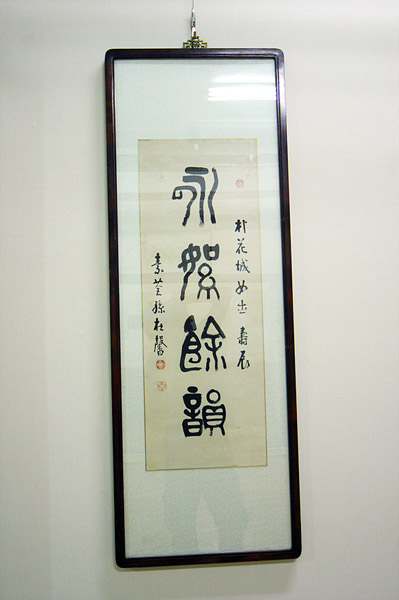 朴花城女史 壽辰
咏絮餘韻
素荃孫在馨